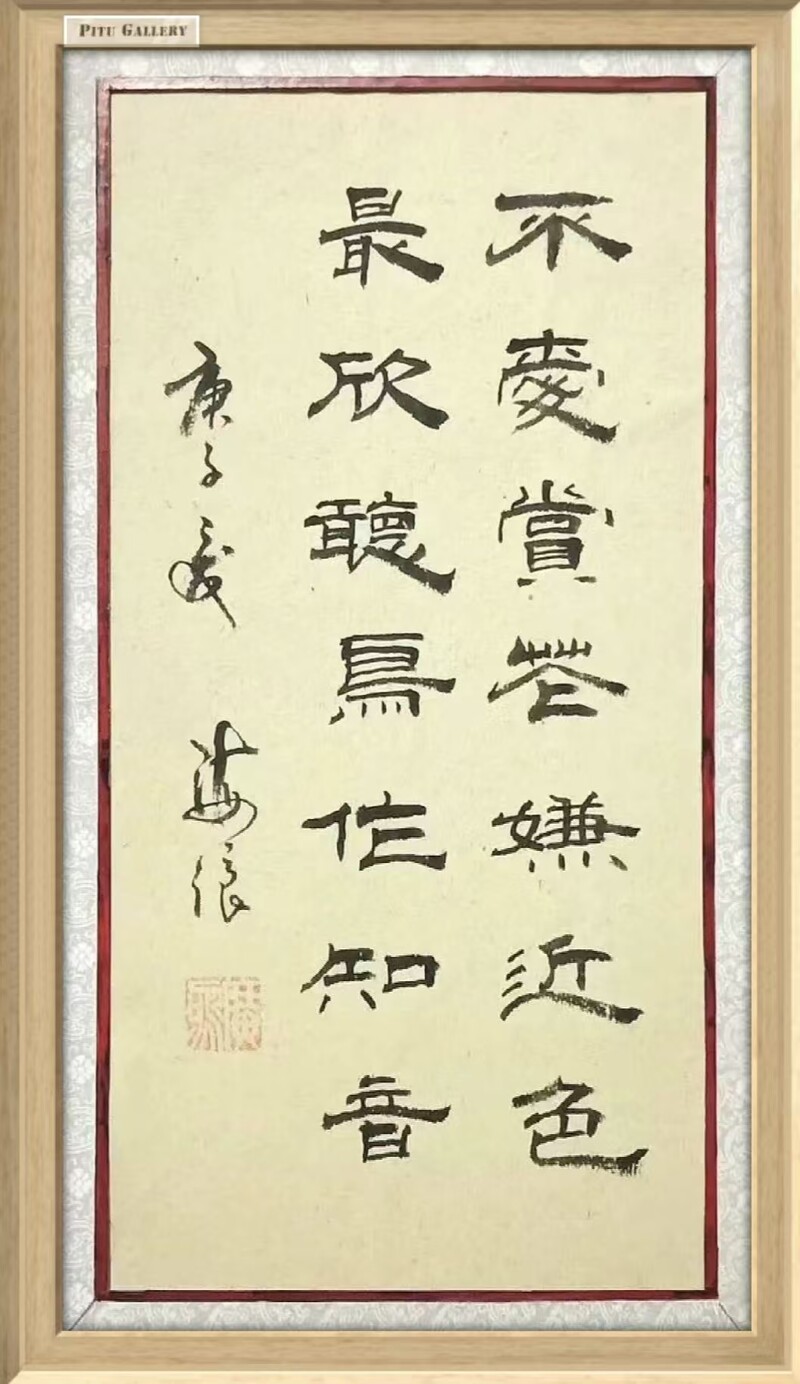 PITU GALLERY
不愛賞花嫌近色
最欣聽鳥作知音
庚子夏
海浪